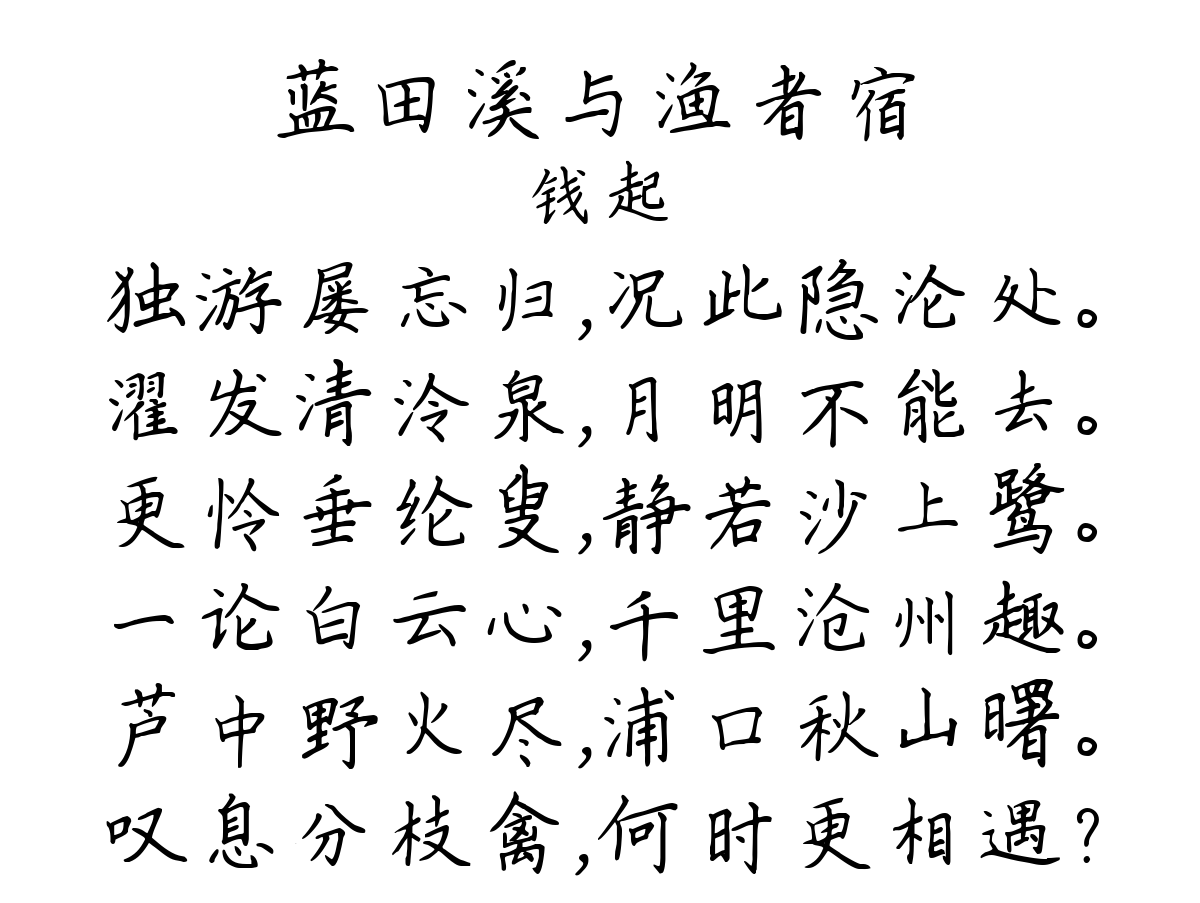 蓝田溪与渔者宿
钱起
独游屡忘归,况此隐沦处。
濯发清泠泉,月明不能去。
更怜垂纶叟,静若沙上鹭。
一论白云心,千里沧州趣。
芦中野火尽,浦口秋山曙。
叹息分枝禽,何时更相遇?